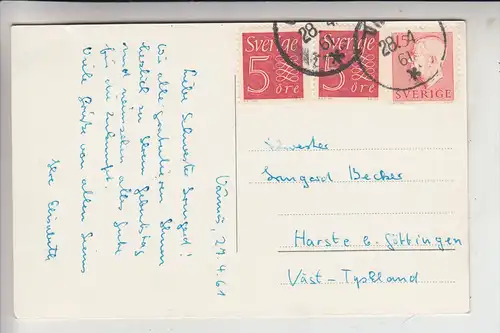 Värnamo, 27.4.61
Liebe Schwester Irmgard!
Wir alle gratulieren Ihnen
herzlich zu Ihrem Geburtstag
und wünschen alles Gute
für die Zukunft.
Viele Grüße von allen Ihrens
Ihre Elisabeth
Sverige
5
öre
Sverige
5
öre
SVERIGE
28. 4
61
28. 4
61
Schwester
Irmgard Becker
Harste b. Göttingen
Väst-Tyskland